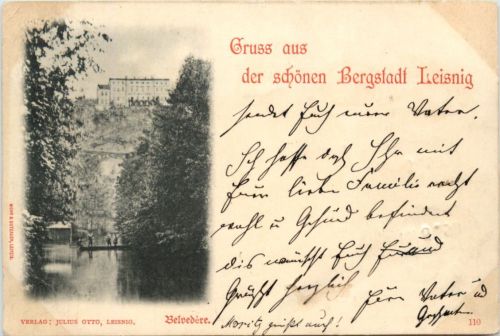 Gruss aus
der schönen Bergstadt Leisnig
sendet Euch euer Vater.
Ich hoffe daß Ihr mit
Eure liebe Familie recht
wohl u Gesund befindet
dis wünscht Euch
Grüßt herzlich Euer Vater u
Moritz grüßt auch!
VERLAG: JULIUS OTTO, LEISNIG.
Belvedère.
110